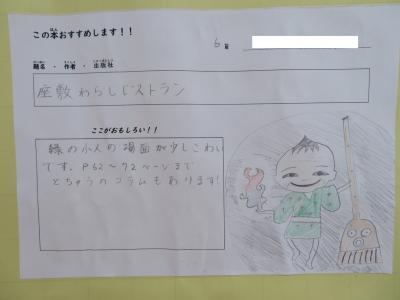 この本おすすめします！！
6 年
題名・作者・出版社
座敷わらしレストラン
ここがおもしろい！！
緑の小人の場面が少しこわい
です。P62～72ページまで
とちゅうのコラムもあります!